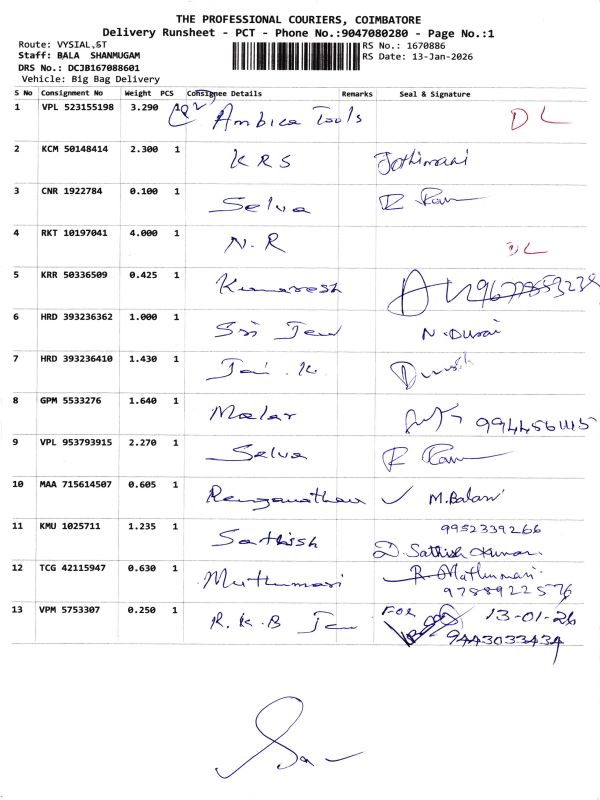 THE PROFESSIONAL COURIERS, COIMBATORE
Delivery Runsheet - PCT - Phone No.:9047080280 - Page No.:1
Route: VYSIAL,ST
RS No.: 1670886
Staff: BALA SHANMUGAM
RS Date: 13-Jan-2026
DRS No.: DCJB167088601
Vehicle: Big Bag Delivery
S No Consignment No Weight PCS Consignee Details Remarks Seal & Signature
1 VPL 523155198 3.290 Ambica Tools DL
2 KCM 50148414 2.300 1 KRS Jothimani
3 CNR 1922784 0.100 1 Selva
4 RKT 10197041 4.000 1 N.R DL
5 KRR 50336509 0.425 1 Kumaresh
6 HRD 393236362 1.000 1 Sri Jew N.Durai
7 HRD 393236410 1.430 1 Jai .K.
8 GPM 5533276 1.640 1 Malar
9 VPL 953793915 2.270 1 Selva
10 MAA 715614507 0.605 1 Renganathan M.Balan
11 KMU 1025711 1.235 1 Sathish 9952339266
D.Sathish Kumar
12 TCG 42115947 0.630 1 Muthumari R.Muthumari
9758922576
13 VPM 5753307 0.250 1 R.K.B Jew FOR 13-01-26
9443033434